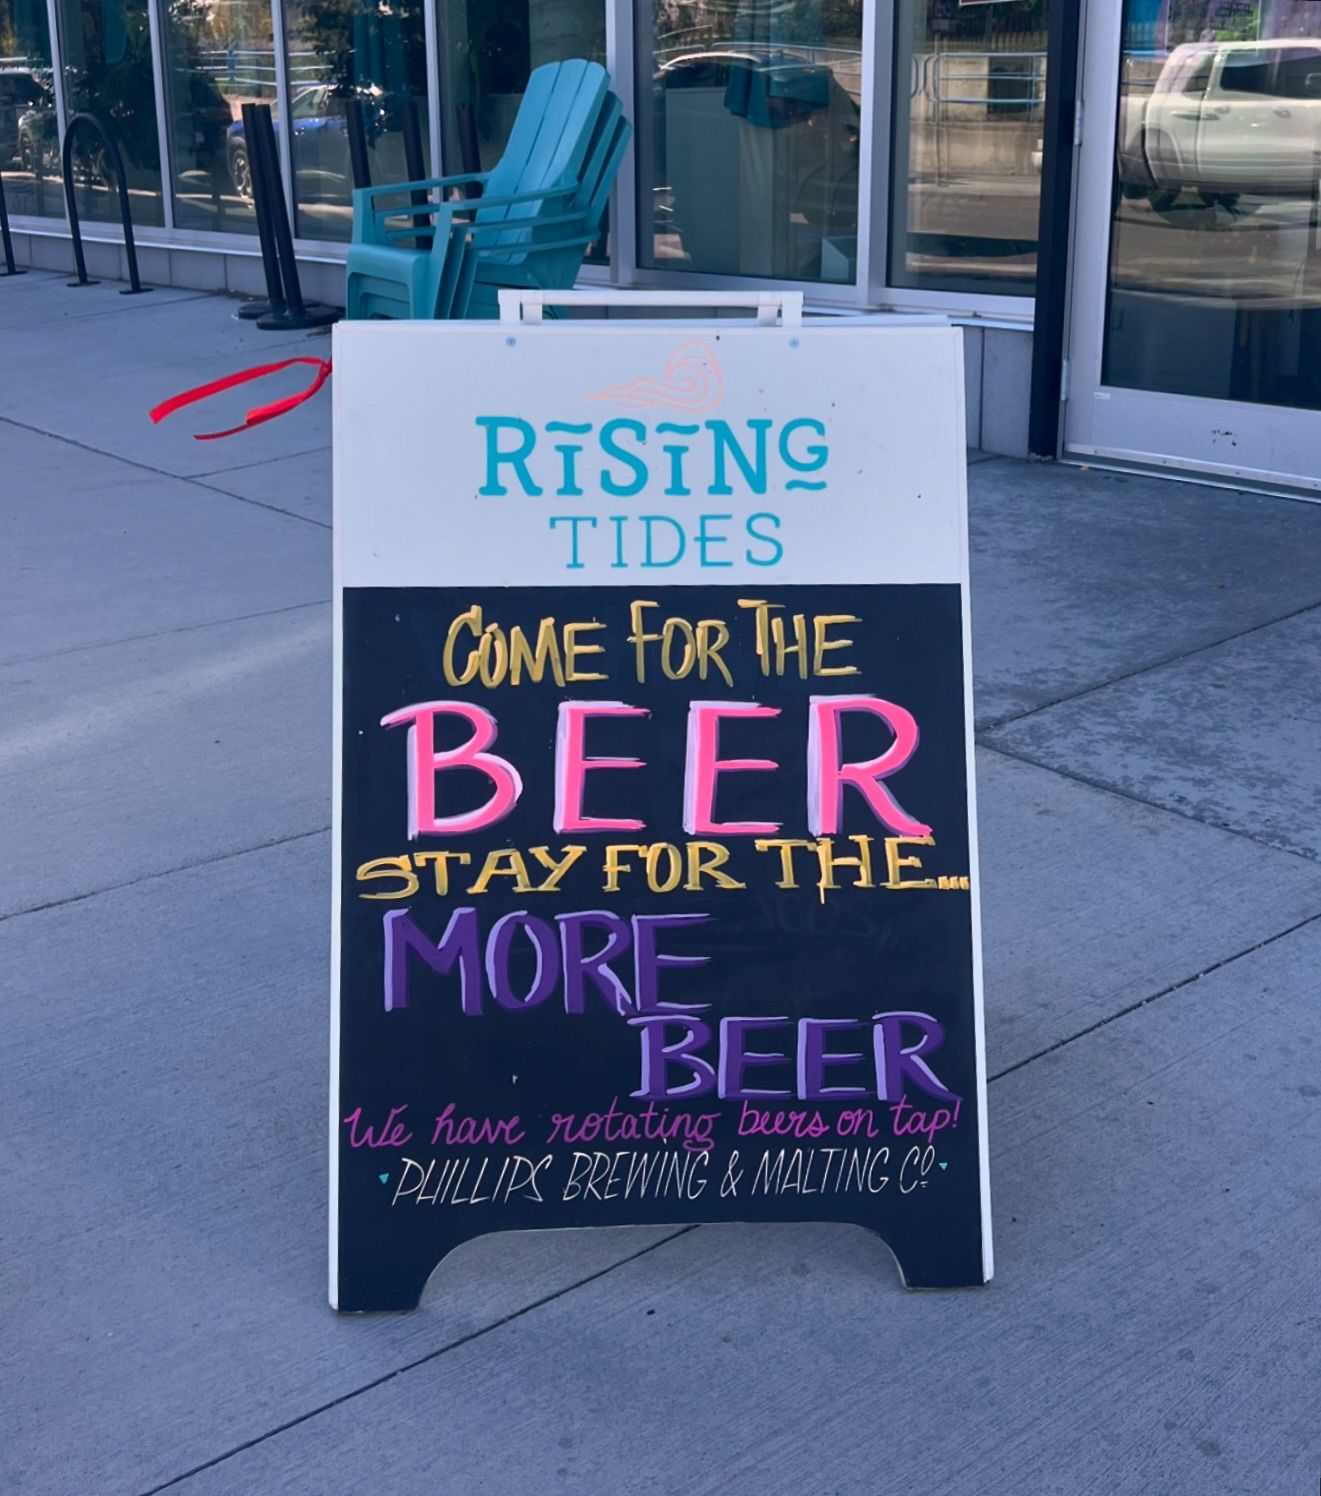 RISING
TIDES
COME FOR THE
BEER
STAY FOR THE...
MORE
BEER
We have rotating beers on tap!
PHILLIPS BREWING & MALTING Co